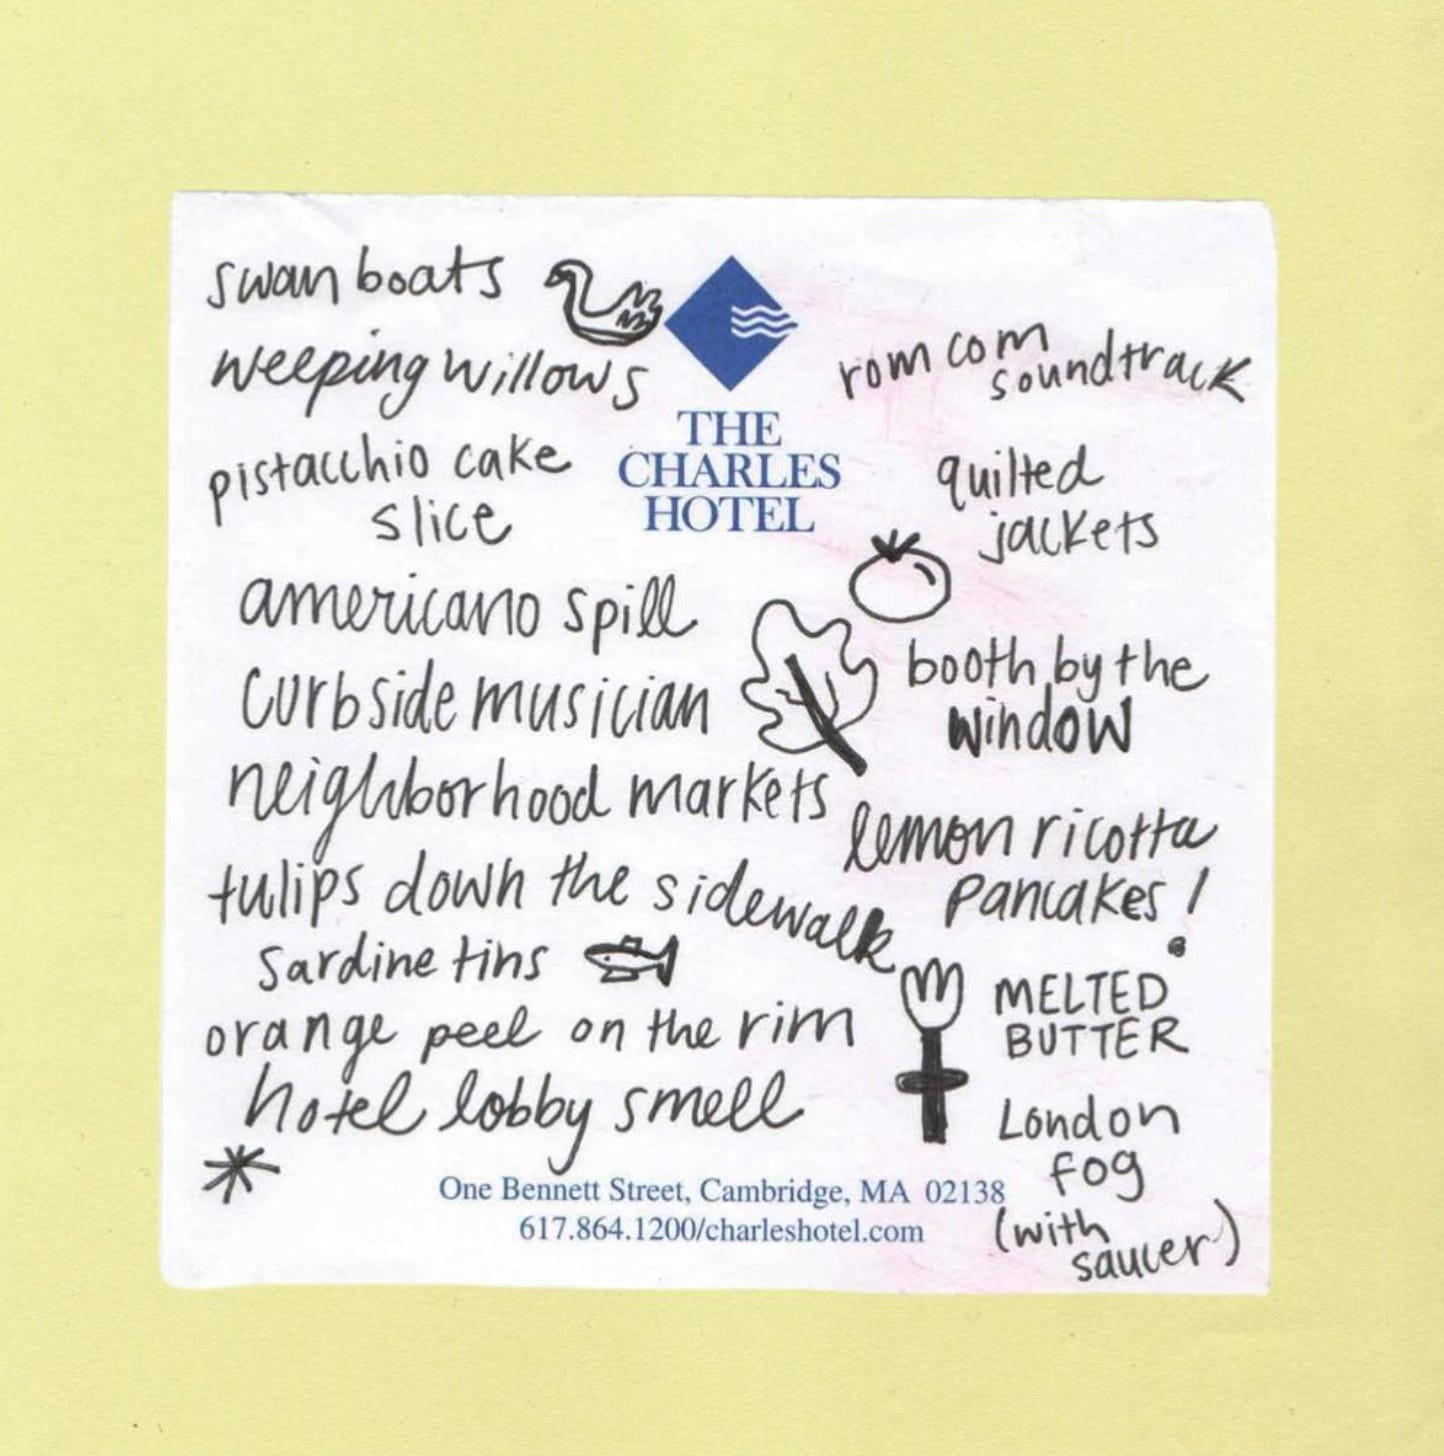 swan boats
weeping willows
pistacchio cake
slice
americano spill
curbside musician
neighborhood markets
tulips down the sidewalk
sardine tins
orange peel on the rim
hotel lobby smell
THE
CHARLES
HOTEL
rom com
soundtrack
quilted
jackets
booth by the
window
lemon ricotta
pancakes!
MELTED
BUTTER
London
Fog
(with
saucer)
One Bennett Street, Cambridge, MA 02138
617.864.1200/charleshotel.com